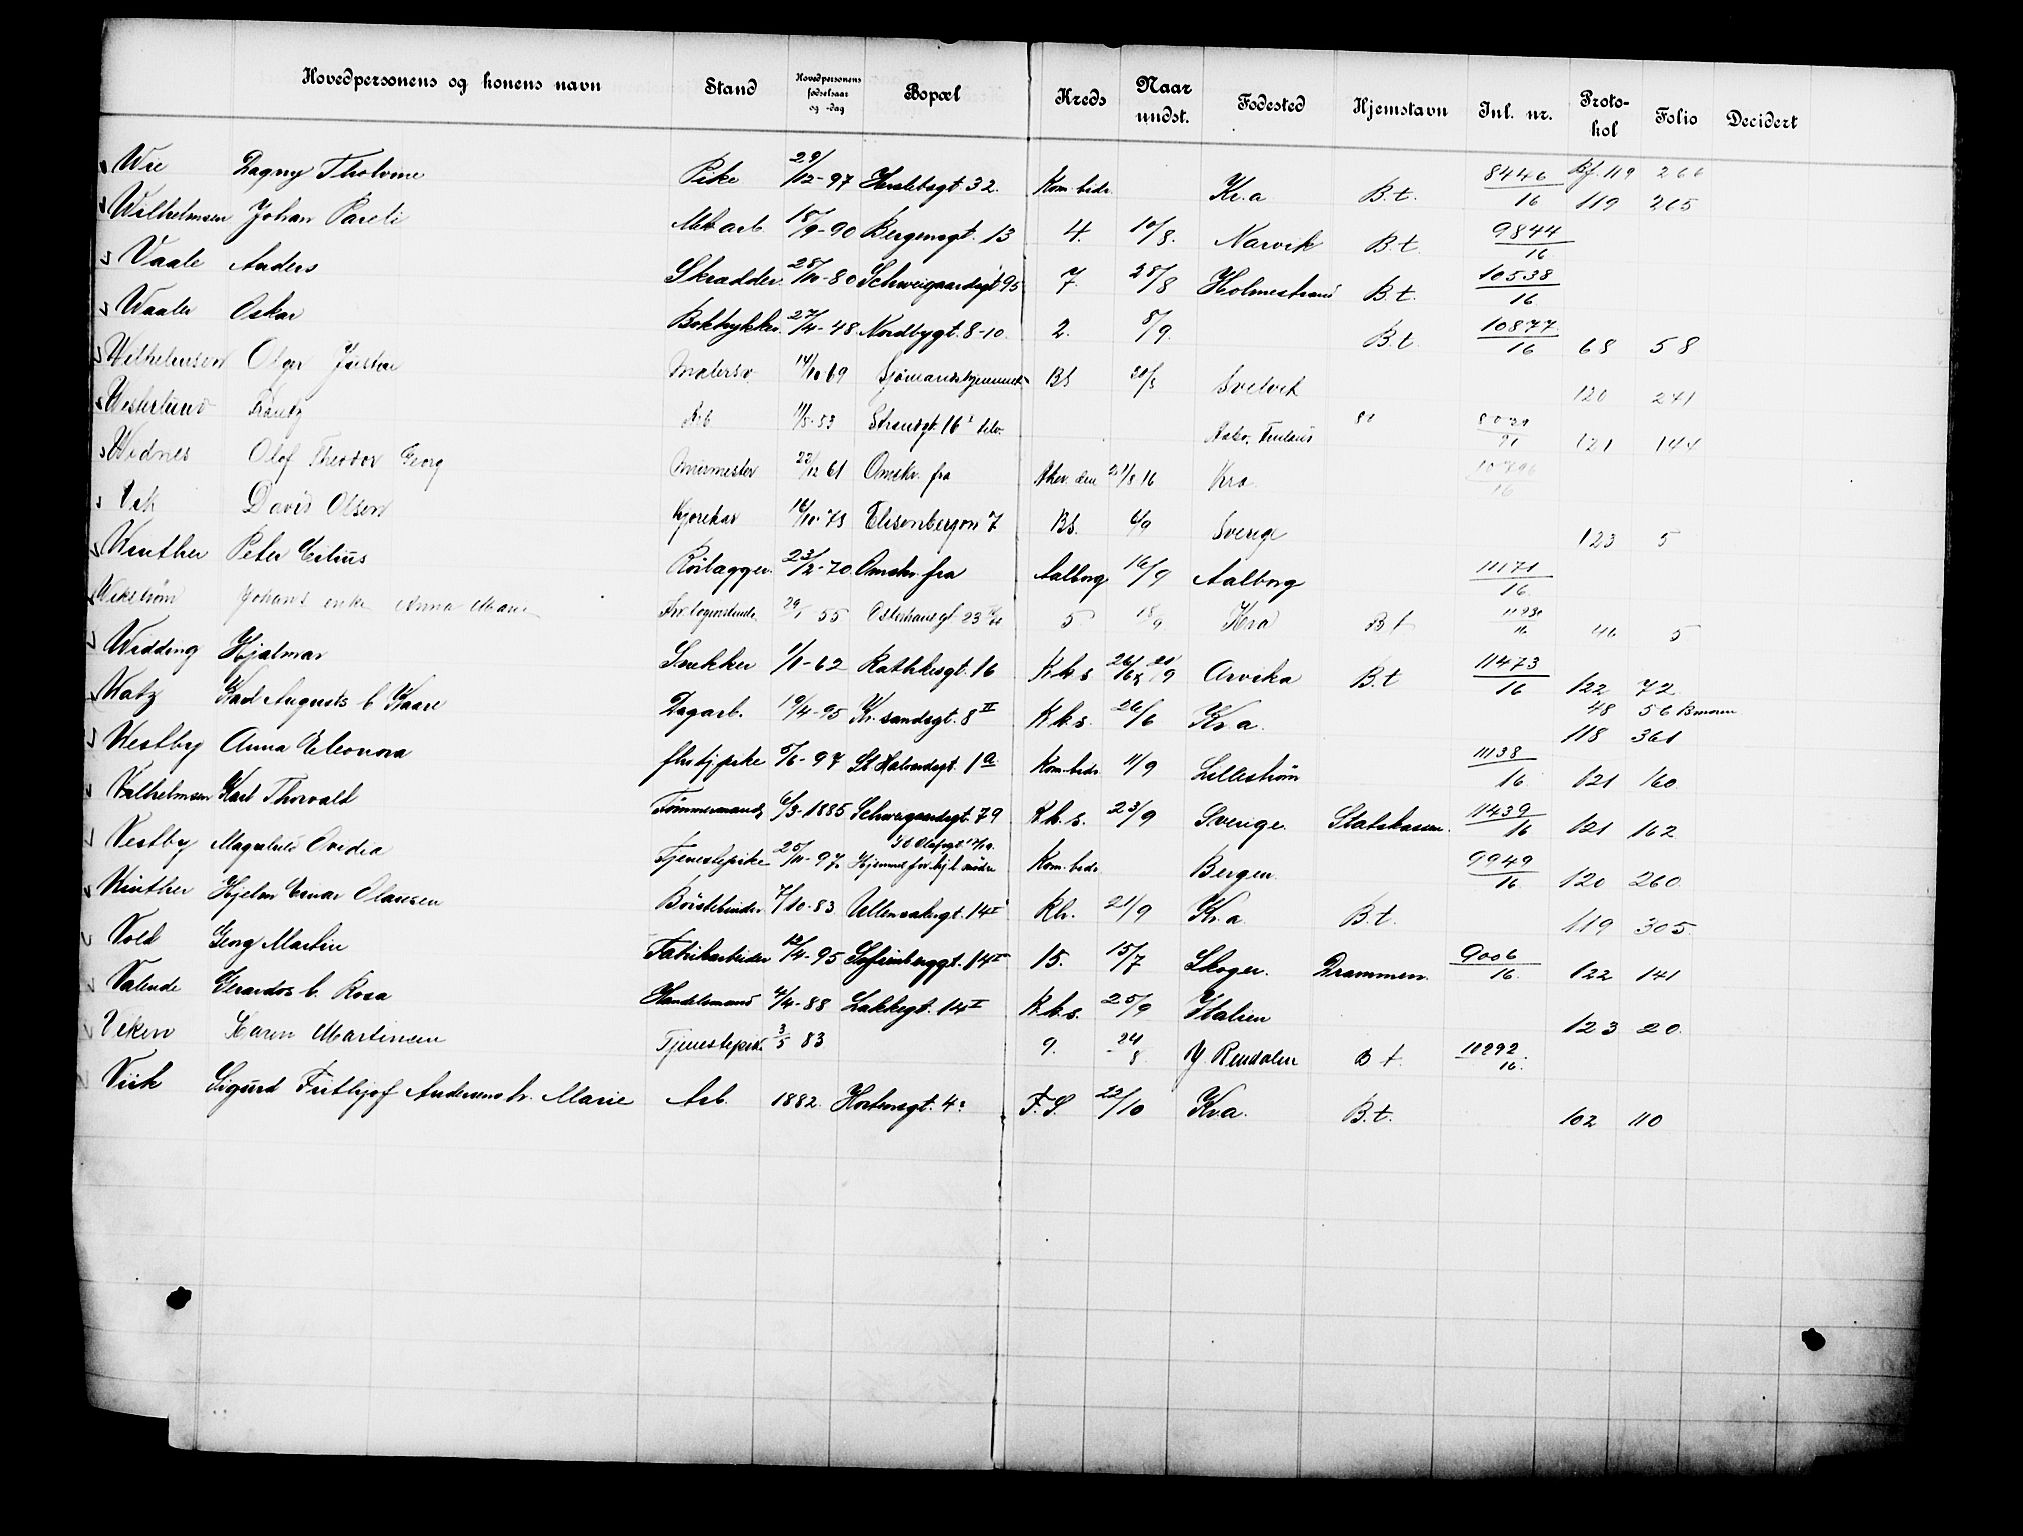 Hovedpersonens og konens navn Stand Hovedpersonens fødselsaar og -dag Bopæl Kreds Naar undst. Fødested Hjemstavn Inl. nr. Protokol Folio Decidert
Wie Dagny Tholvine Pike 29/12-97 Herslebsgt. 32. Kom. bidr. Kr.a B.t. 8446/16 Bf. 119 266 119 265
Wilhelmsen Johan Pareli Met arb. 18/9-90 Bergensgt. 13 4. 10/8. Narvik B.t. 9844/16
Vaale Anders Skrædder 28/10-80 Schweigaardsgt 95 7. 28/8 Holmestrand B.t. 10538/16
Waaler Oskar Boktrykker 27/4-48 Nordbygt. 8-10. 2. 8/9. B.t. 10877/16 68 58
Wilhelmsen Olger Justin Malersv. 14/10 69 Sjømandshjemmet Bs 20/5 Svelvik 120 241
Westerlund Frantz Arb 11/8-53 Strandgt. 16 Åbo, Finland 121 144
Widnes Olof Theodor Georg Murmester 22/12 61 Omskr. fra Aker. den 21/8 16 Kra 10796/16
Vik David Olsen Kjørekar 16/10-73 Elisenbergvn 7 Bs. 6/9 Sverige 123 5
Winther Peter Eilius Rørlægger 23/2-70 Omskr. fra Aalborg 16/9 Aalborg 11171/16
Wikstrøm Johans enke Anna Marie 29/1 55 Osterhausgt 23 5 18/9 Kra Bt 11230/16 46 5
Widding Hjalmar Snekker 1/1-62 Rathkesgt. 16 K.k.s 26/6 & 21/9 Arvika B.t 11473/16 122 72
Watz Karl Augusts b. Kaare Dagarb. 19/4-95 Kr. sandsgt. 8 II K.k.s. 26/6 Kr.a. 48 56 B moren 118 361
Westby Anna Eleonora fhv tj.pike 5/6-97 St Halvardsgt. 1a Kom. bidr 11/9 Lillestrøm 11138/16 121 160
Wilhelmsen Karl Thorvald Tømmermand 6/3-1885 Schweigaardsgt. 79 K.k.s. 23/9 Sverige. Statskassen. 11439/16 121 162
Vestby Magnhild Ovidia Tjenestepike 25/10-97. Hjemmet for hjl. mødre Kom. bidr Bergen 9949/16 120 260
Winther Hjelm Einar Olausen Børstebinder 7/10-83 Ullensakergt. 14 I Kh. 21/9 Kr.a B.t. 119 305
Vold Georg Martin Fabrikarbeider 12/4-95 Sofienberggt. 14 II 15. 15/7 Skoger. Drammen. 9006/16 122 141
Valende Gerardos b. Rosa Handelsmand 4/4-88 Lakkegt. 14 I K.k.s. 25/9 Italien 123 20
Viken Karen Martinsen Tjenestepik. 3/5 83 9. 24/8 Y. Rendalen Bt. 10292/16.
Viik Sigurd Frithjof Andersens h. Marie Arb. 1882. Hortensgt. 4 F.S. 22/10 Kr.a. B.t. 102 110